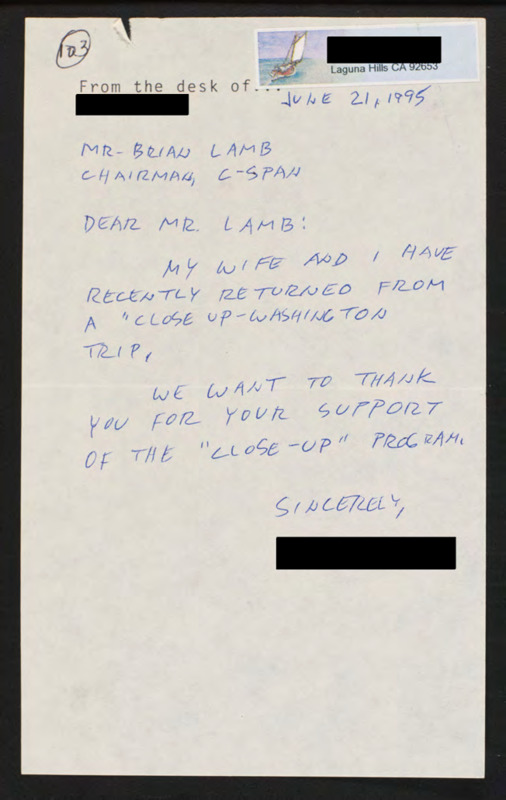 103
Laguna Hills CA 92653
From the desk of...
JUNE 21, 1995
MR- BRIAN LAMB
CHAIRMAN, C-SPAN
DEAR MR. LAMB:
MY WIFE AND I HAVE
RECENTLY RETURNED FROM
A "CLOSE UP-WASHINGTON
TRIP.
WE WANT TO THANK
YOU FOR YOUR SUPPORT
OF THE "CLOSE-UP" PROGRAM.
SINCERELY,